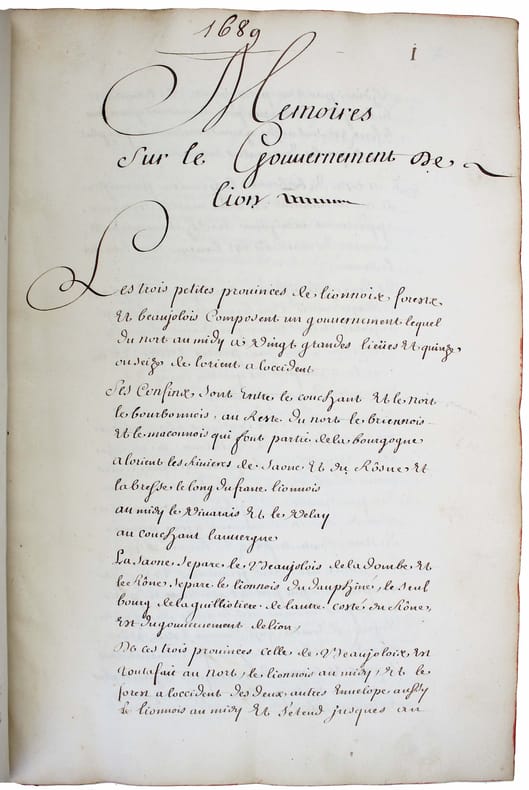 1689
1
Memoires
Sur le Gouvernement De
lion
Les trois petites provinces de lionnoix forestz
Et beaujolois Composent un gouvernement lequel
du nort au midy a Vingt grandes lieües Et quinze
ou seize de lorient a loccident
Ses Confins Sont Entre le couchant Et le nort
le bourbonnois . au Reste du nort le briennois
Et le maconnois qui font partie dela bourgogne
a lorient les Rivieres de Saone Et du Rosne Et
la bresse le long du franc lionnois
au midy le Vivarais Et le Velay
au couchant lauvergne
La Saone Separe le Beaujolois dela dombe Et
le Rône Separe le lionnois du dauphiné, le Seul
bourg dela guilliotiere de lautre costé du Rône
Est du gouvernement de lion
De ces trois provinces celle de Beaujoloix Est
tout a fait au nort, le lionnois au midy, Et le
forest a loccident des deux autres Envelope aussy
le lionnois au midy Et s'étend jusques au